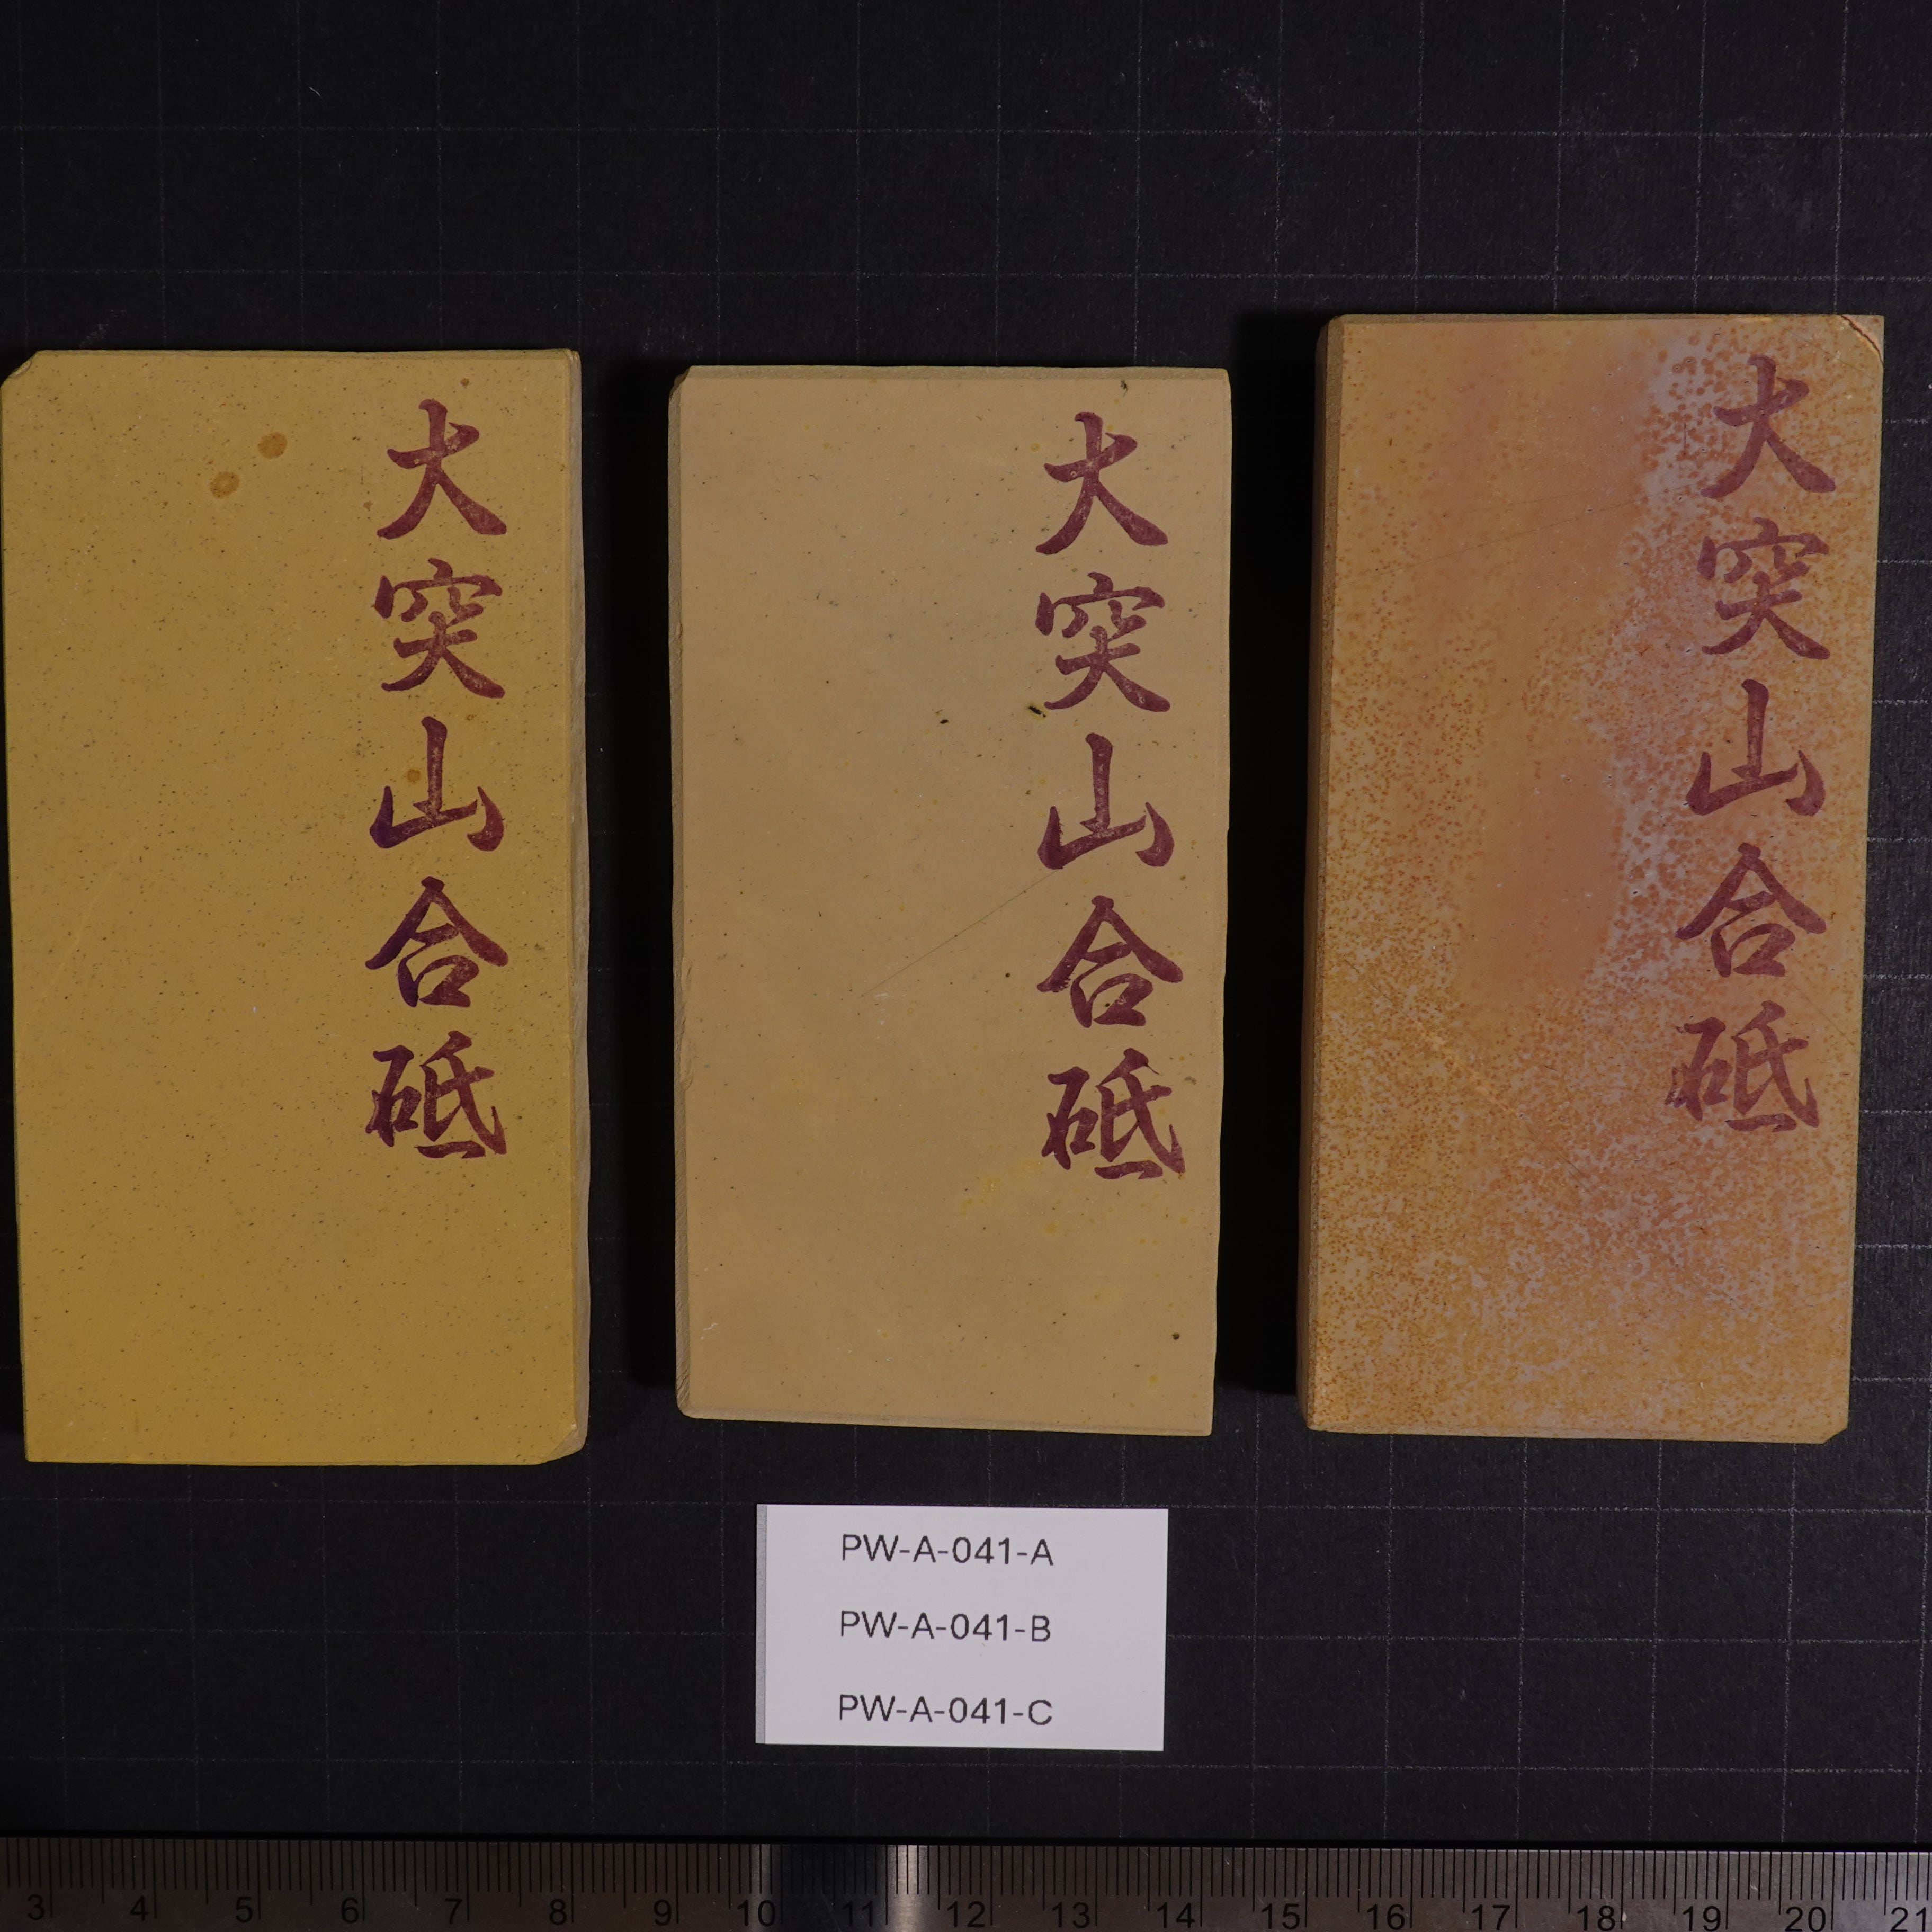 大突山合砥
大突山合砥
大突山合砥
PW-A-041-A
PW-A-041-B
PW-A-041-C
3 4 5 6 7 8 9 10 11 12 13 14 15 16 17 18 19 20 21